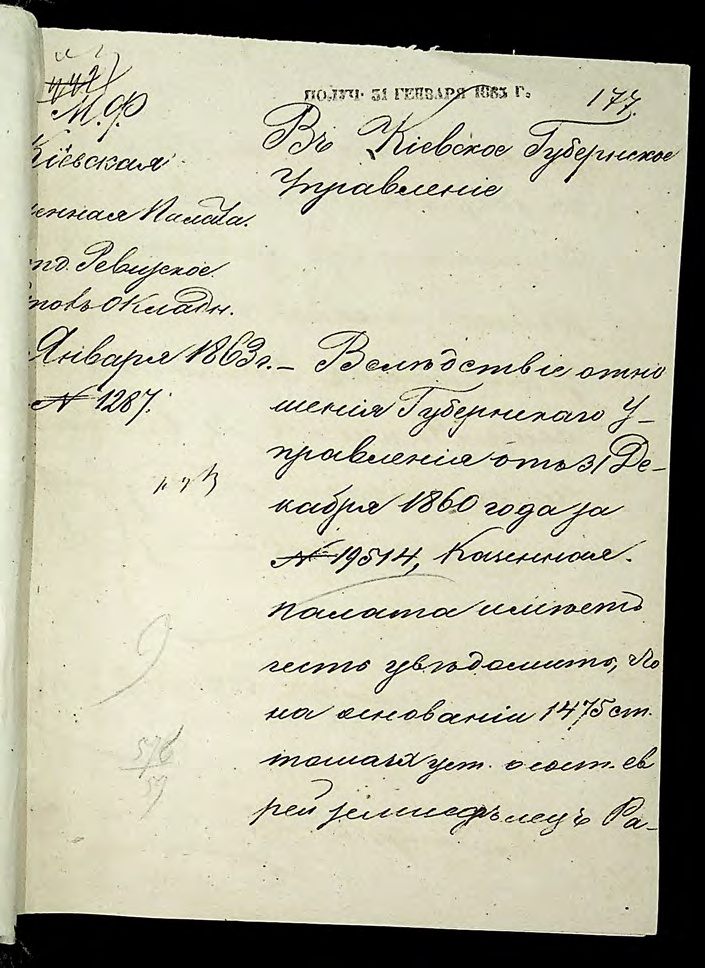 М.Ф.
ПОЛУЧ. 31 ГЕНВАРЯ 1863 Г.
177.
Кіевская
енная Палата.
Ревизское
Окладн.
Января 1863 г.
№ 1287.
Въ Кіевское Губернское
Управленіе
— Вслѣдствіе отно
шенія Губернскаго У-
правленія отъ 31 Де-
кабря 1860 года за
№ 19514, Казенная
палата имѣетъ
честь увѣдомить, что
на основаніи 1475 ст.
уст. о сост. ев
рей земледѣлецъ Ра-
576
59